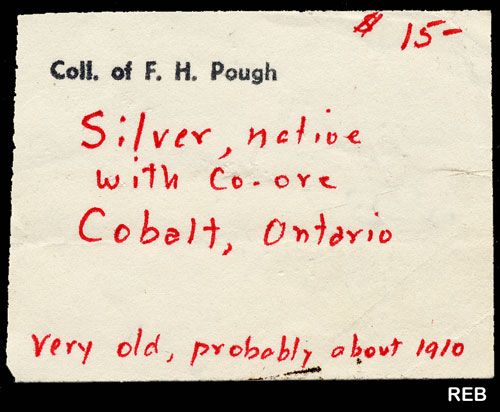 $ 15-
Coll. of F. H. Pough
Silver, native
with Co-ore
Cobalt, Ontario
Very old, probably about 1910
REB